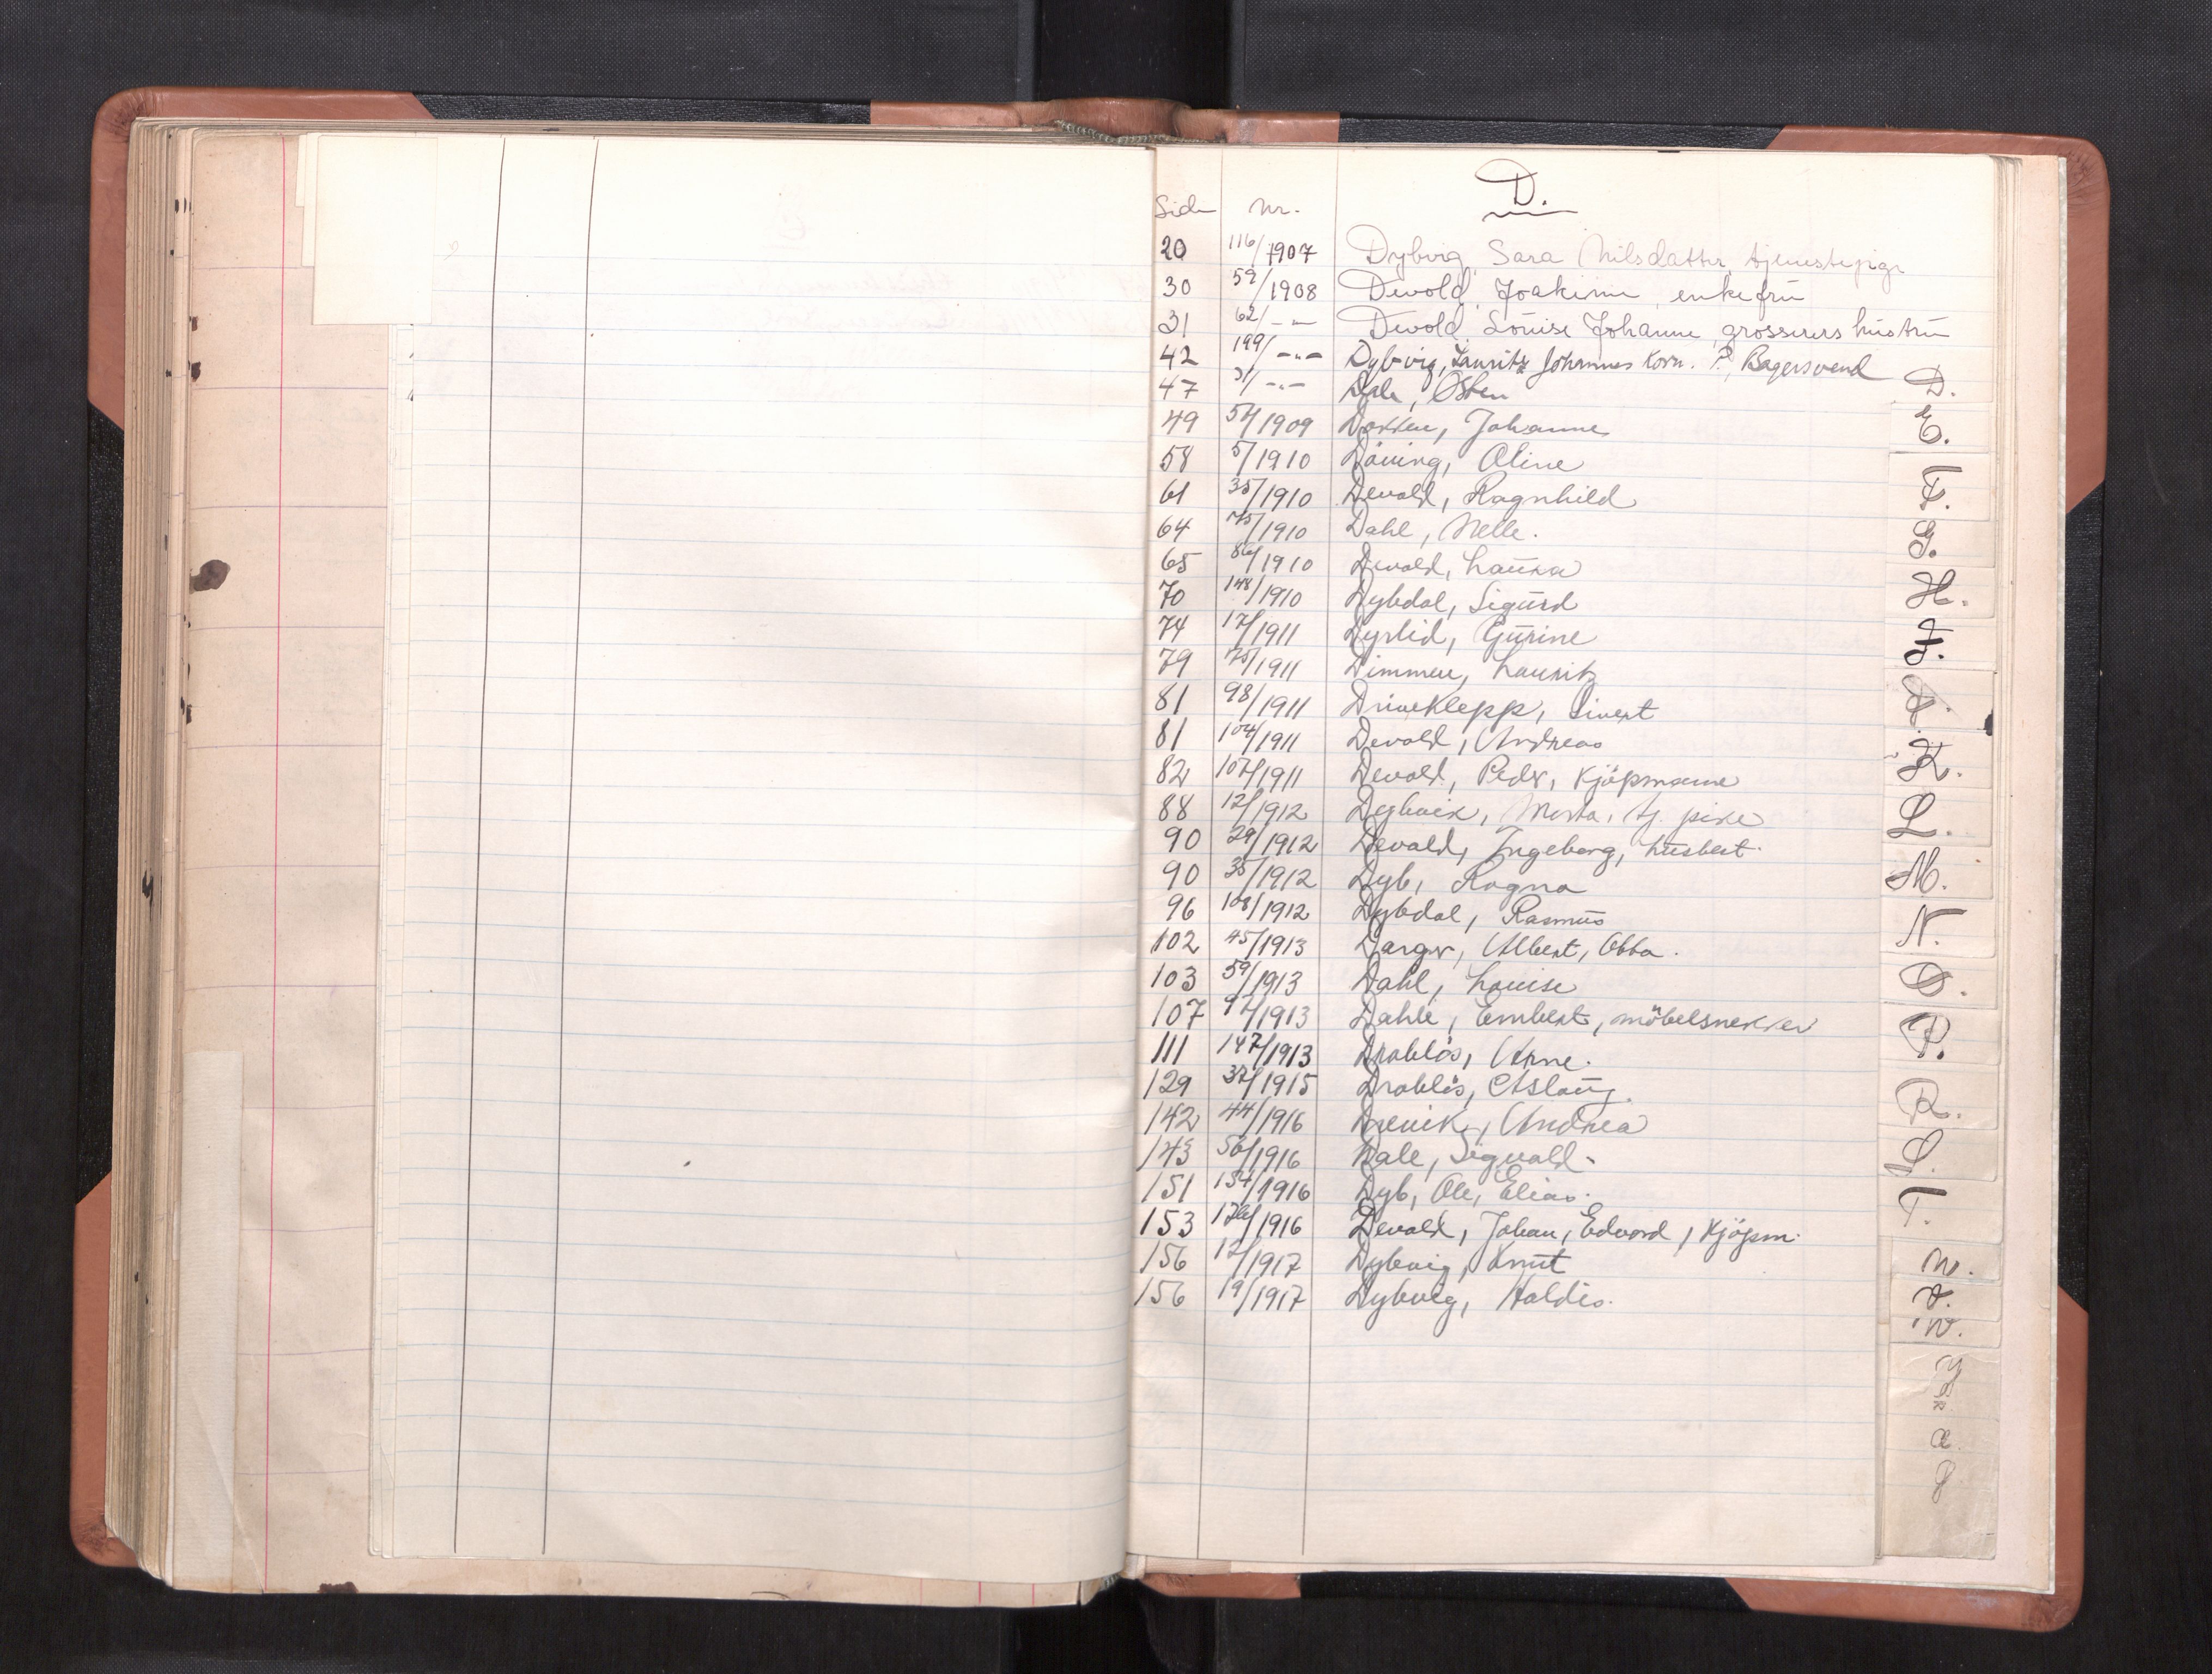 D.
Side Nr.
20 116/1907 Dybvig, Sara Nilsdatter, tjenestepge
30 59/1908 Devold, Joakime, enkefrü
31 62/-„- Devold, Loüise Johanne, grosserers hüstrü
42 199/-„- Dybvig, Lauritz Johannes Korn. P., Bagersvend
47 31/-„- Dale, Østen
49 54/1909 Dokken, Johanne
58 5/1910 Döving, Oline
61 35/1910 Devold, Ragnhild
64 75/1910 Dahl, Nelle.
65 86/1910 Devold, Laüra
70 148/1910 Dybdal, Sigürd
74 17/1911 Dyrlid, Gürine
79 75/1911 Dimmen, Lauritz
81 98/1911 Driveklepp, Sivert
81 104/1911 Devold, Andreas
82 107/1911 Devold, Peder, Kjöpmanne
88 12/1912 Dybvik, Marta, tj. pike
90 29/1912 Devold, Ingeborg, hüsbest.
90 35/1912 Dyb, Ragna
96 108/1912 Dybdal, Rasmüs
102 45/1913 Darger, Albert, Obba.
103 59/1913 Dahl, Louise
107 97/1913 Dahle, Embert, möbelsnekker
111 147/1913 Drabløs, Arne.
129 37/1915 Drabløs, Aslaüg.
142 44/1916 Drevik, Andrea
143 56/1916 Dale, Sigvald-
151 154/1916 Dyb, Ole, Elias.
153 176/1916 Devold, Johan, Edvard, Kjöpm.
156 17/1917 Dybvig, Knüt
156 19/1917 Dybvig, Haldis.
D.
E.
F.
G.
H.
I.
J.
K.
L.
M.
N.
O.
P.
R.
S.
T.
U.
V.
W.
Y
Z
Æ
Ø